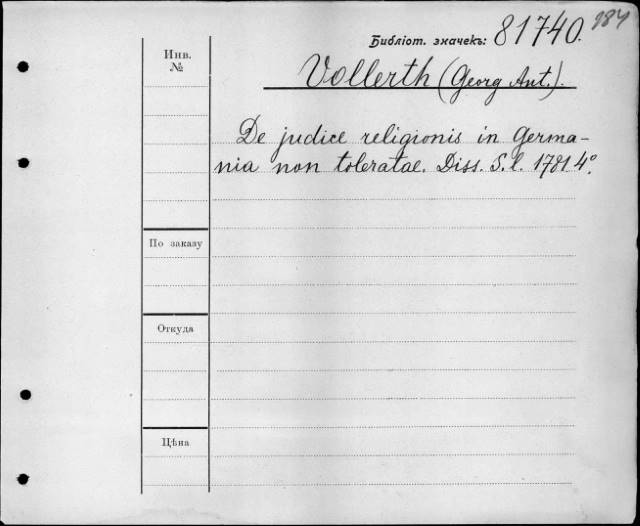 984
Библіот. значекъ: 81740.
Инв. №
Vollerth (Georg Ant.).
De judice religionis in Germa-
nia non toleratae. Diss. S. l. 1781 4º.
По заказу
Откуда
Цѣна